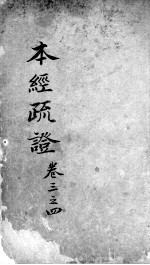 本經疏證
卷三之四